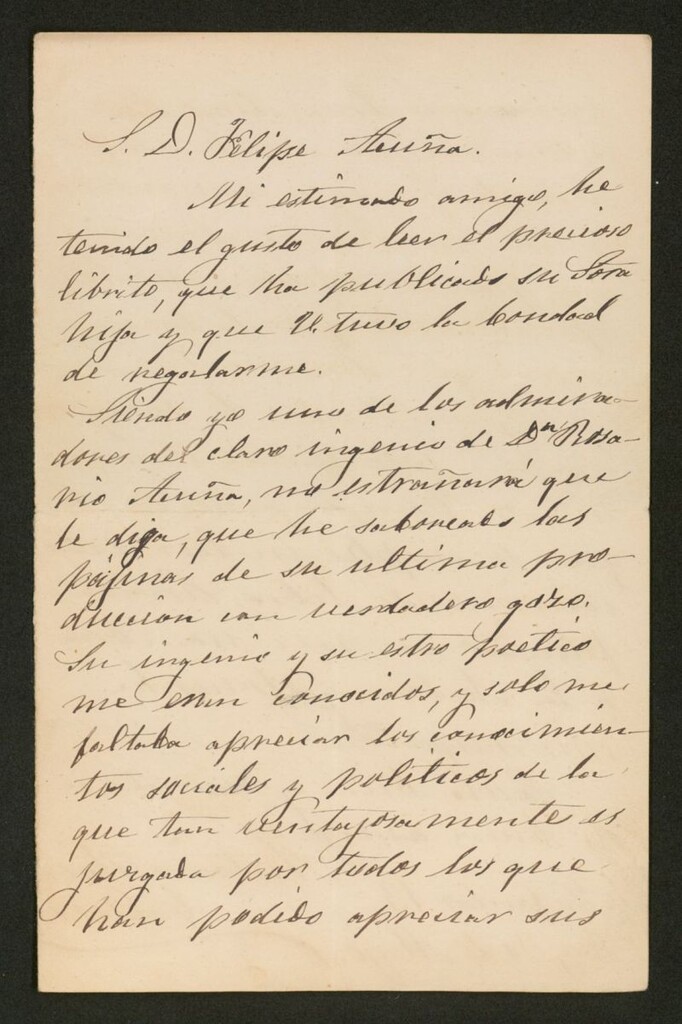 S. D. Felipe Acuña.
Mi estimado amigo, he
tenido el gusto de leer el precioso
librito, que ha publicado su Sora
hija y que V. tuvo la bondad
de regalarme.
Siendo yo uno de los admira-
dores del claro ingenio de Dña Rosa-
rio Acuña, no estrañará que
le diga, que he saboreado las
pájinas de su ultima pro-
duccion con verdadero gozo.
Su ingenio y su estro poético
me eran conocidos, y solo me
faltaba apreciar los conocimien-
tos sociales y politicos de la
que tan ventajosamente es
juzgada por todos los que
han podido apreciar sus